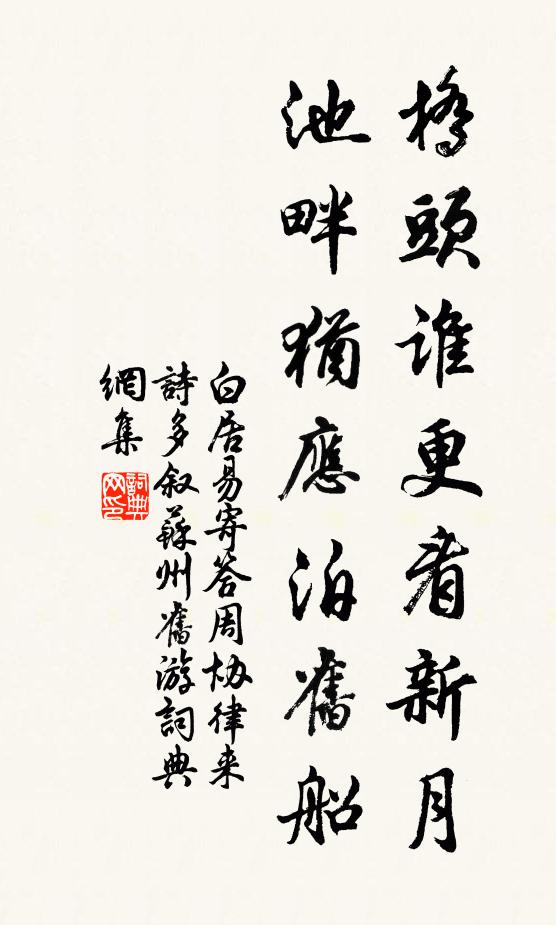 橋頭誰更看新月
池畔猶應泊舊船
白居易寄答周協律来
詩多叙蘇州舊游詞典
網集
詞典
网印